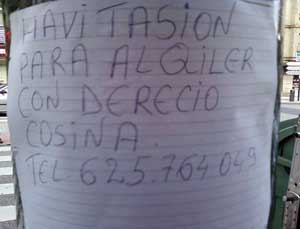 HAVITASION
PARA ALQLILER
CON DERECIO
COSINA.
TEL 625.764.049